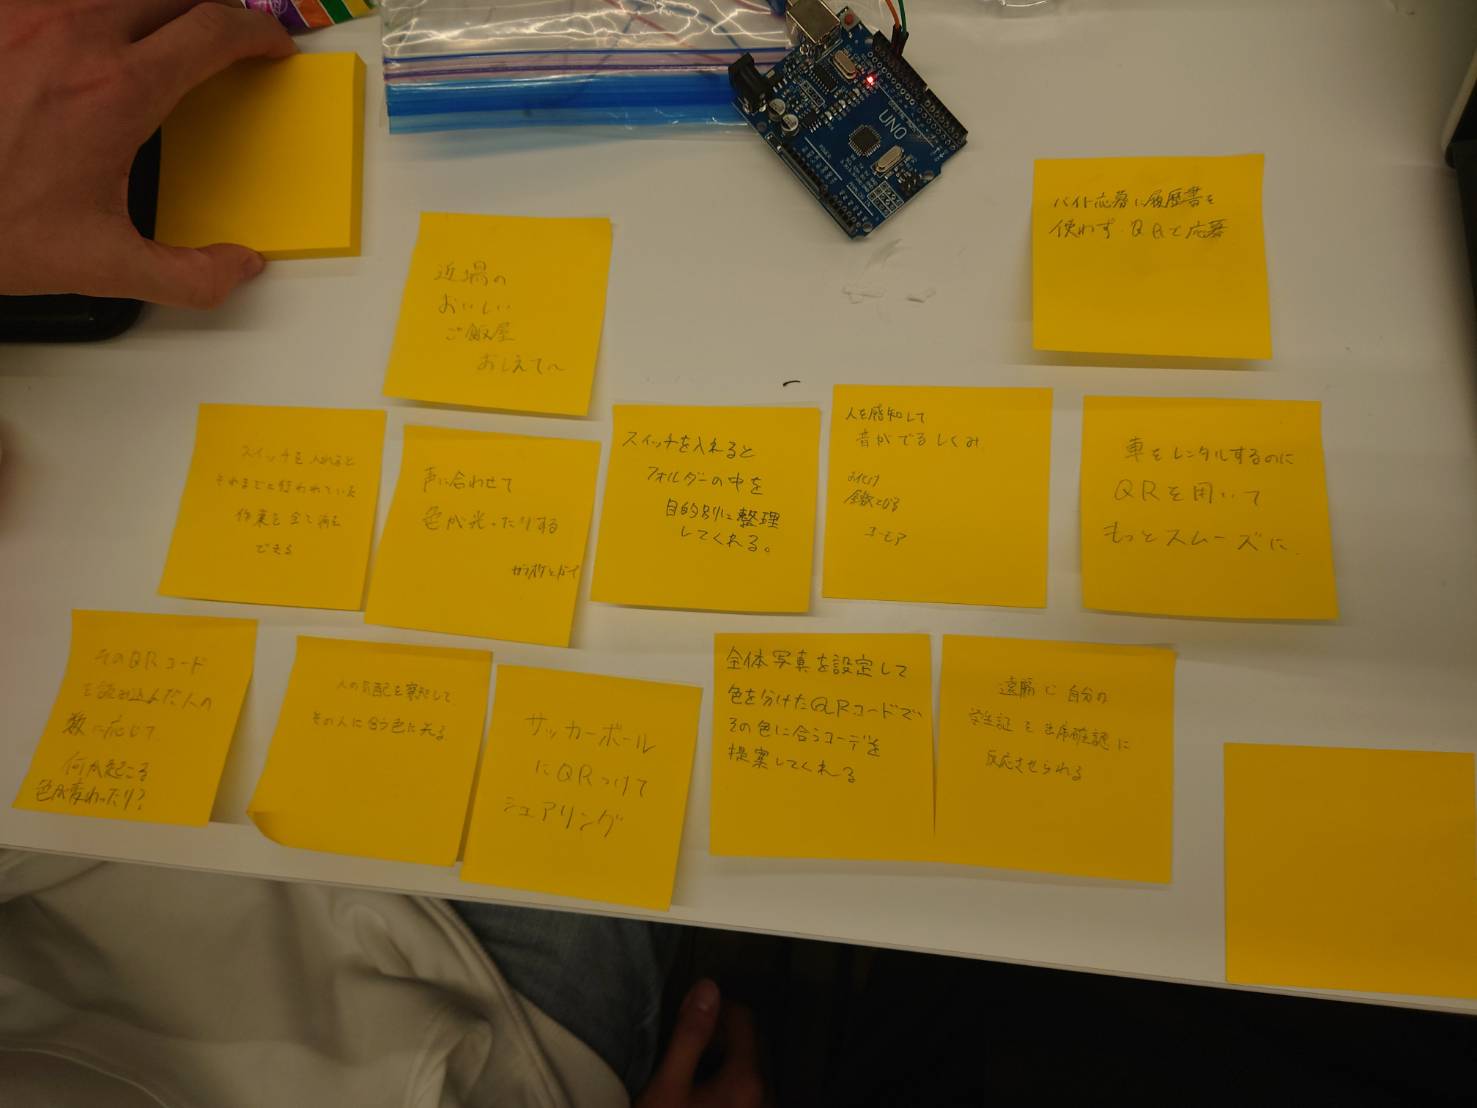 UNO
バイト応募に履歴書を
使わず QRで応募
近場の
おいしい
ご飯屋
おしえて〜
スイッチを入れると
それまでに行われていた
作業を全て再
できる
声に合わせて
色が光ったりする
スイッチを入れると
フォルダーの中を
目的別に整理
してくれる。
人を感知して
音がでるしくみ
車をレンタルするのに
QRを用いて
もっとスムーズに
そのQRコード
を読み込んだ人の
数に応じて
何か起こる
色が変わったり?
人の気配を察知して
その人に合う色に光る
サッカーボール
にQRつけて
シェアリング
全体写真を設定して
色を分けたQRコードで、
その色に合うコーデを
提案してくれる
遠隔で自分の
学生証を出席確認に
反応させられる